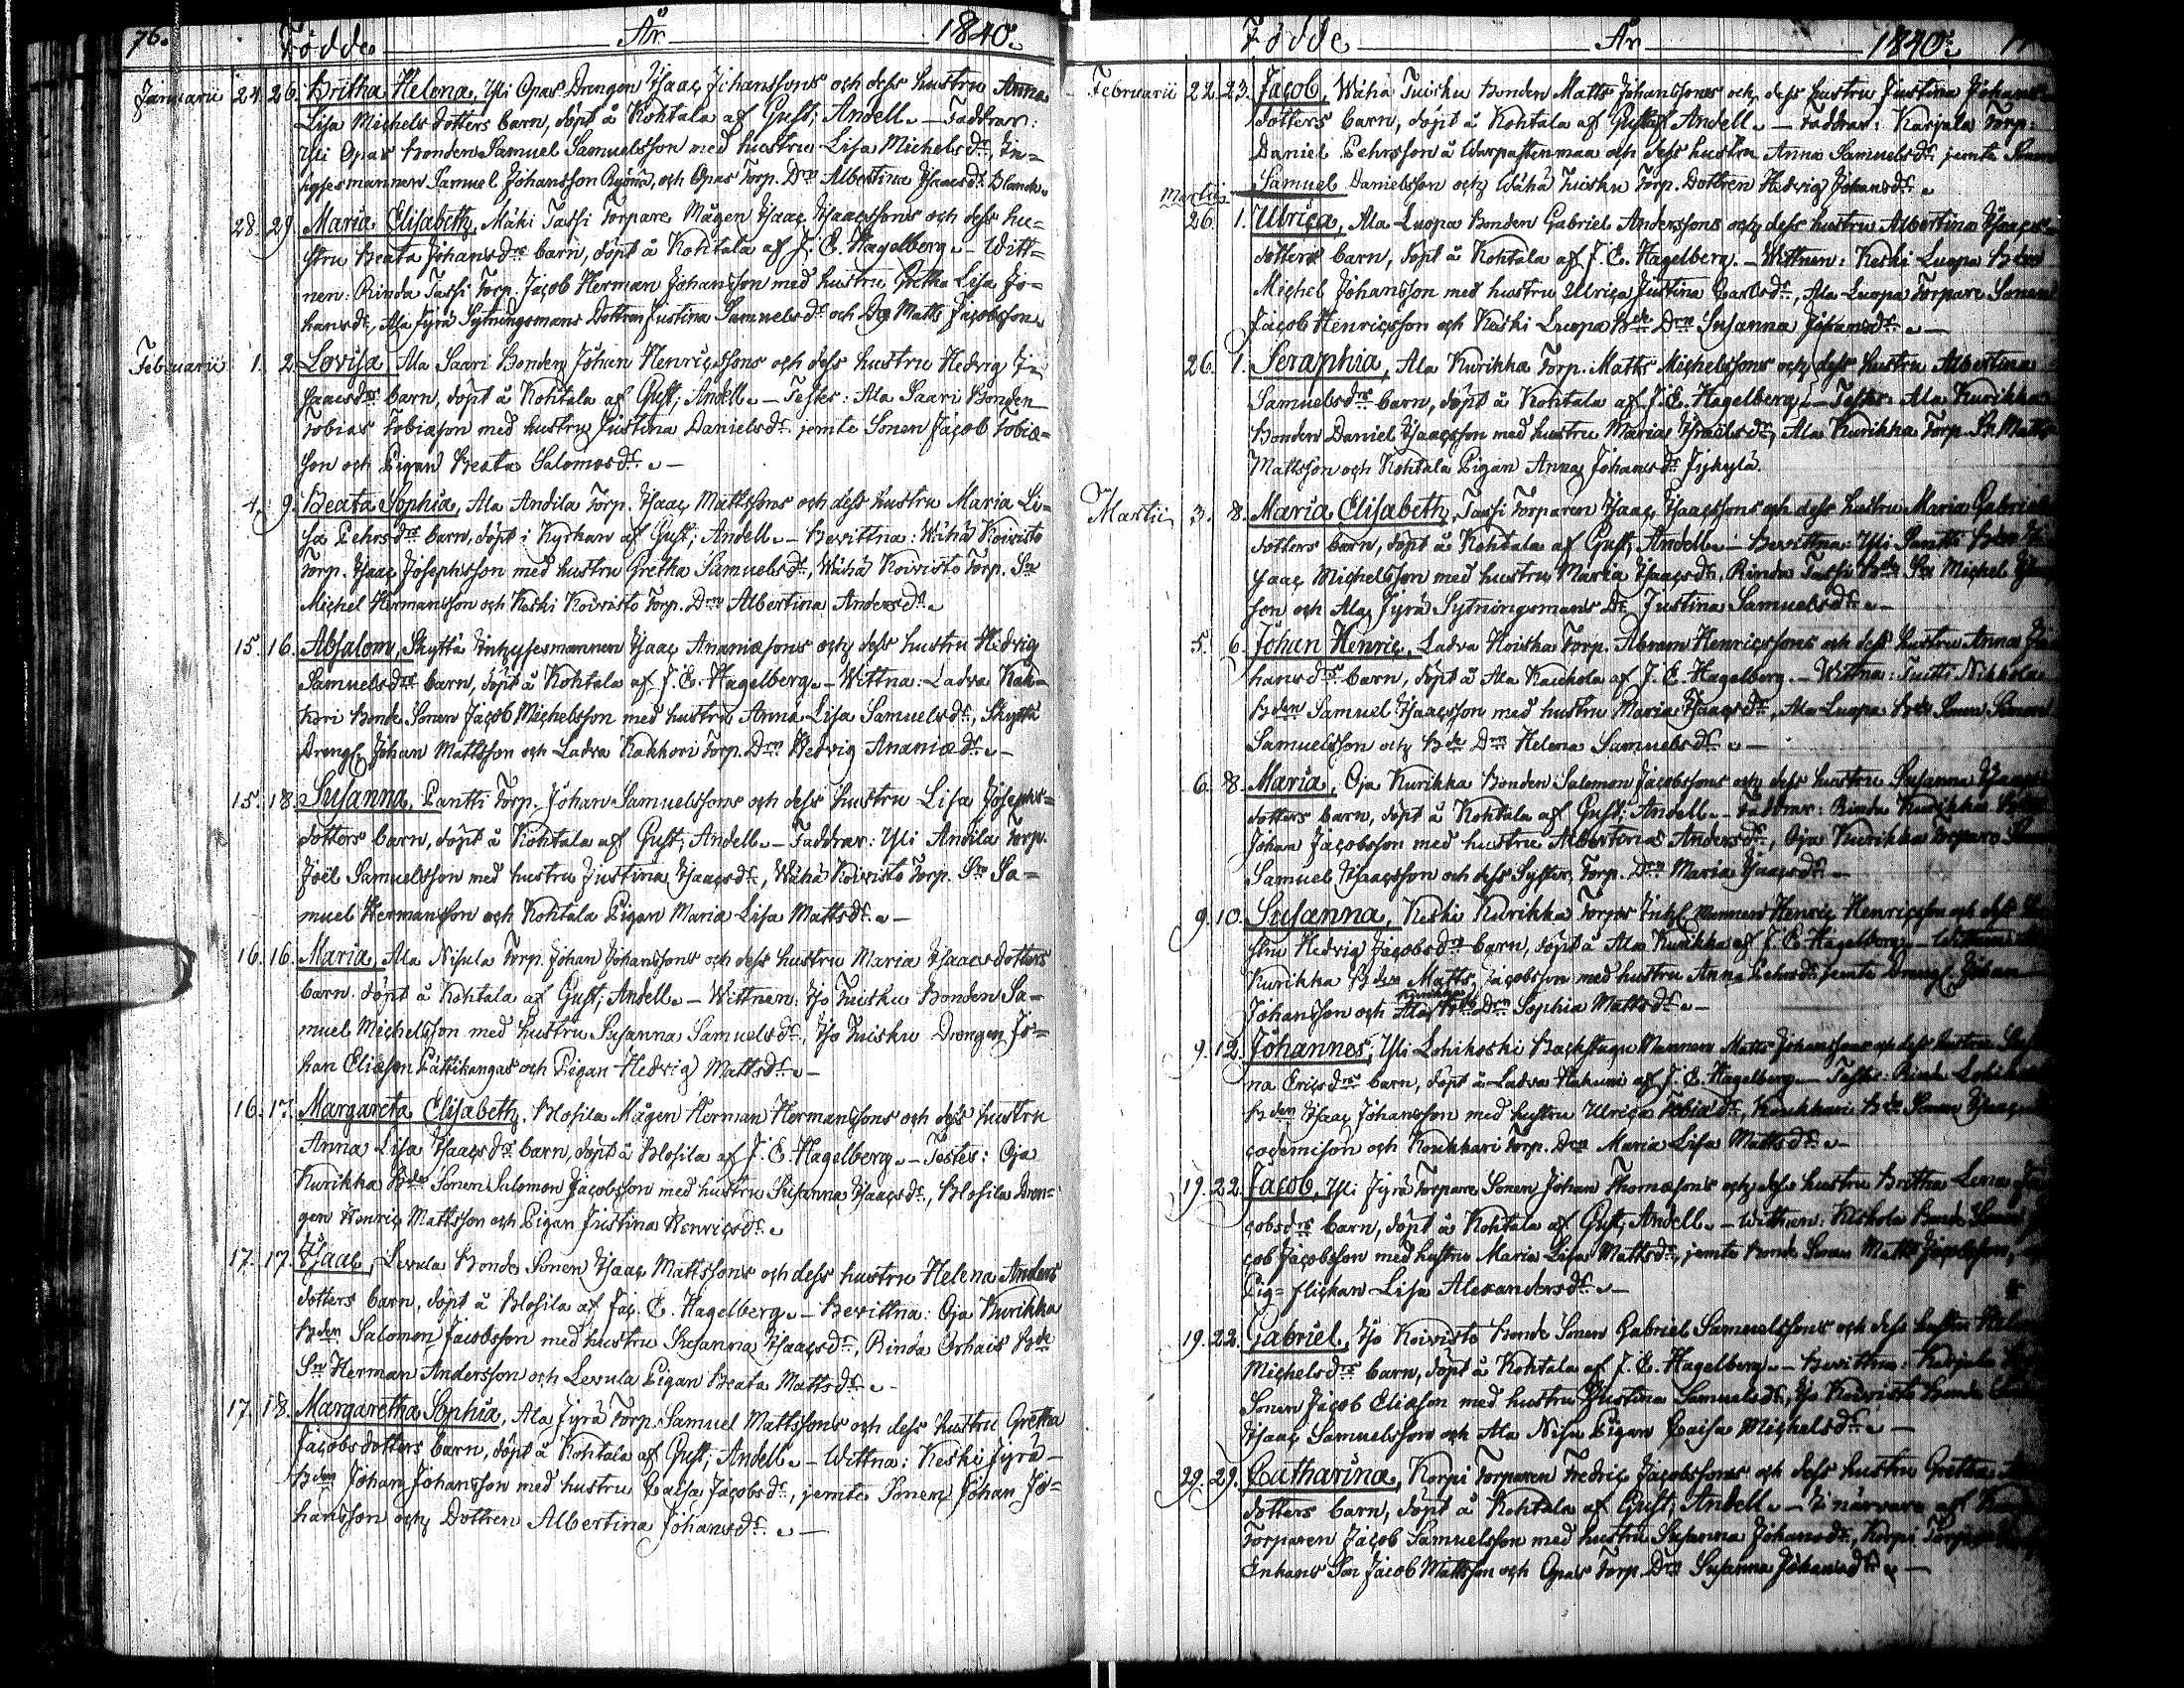 76. Födde År 1840.
Januarii 24. 26. Britha Helena, Yli Opas Drengen Isaac Johanssons och dess hustru Anna
Lisa Michels dotters barn, döpt å Kohtala af Gust; Andell. — Faddrar:
Yli Opas Bonden Samuel Samuelsson med hustru Lisa Michelsdr, In=
hysesmannen Samuel Johansson, och Opas Torp. Drn Albertina Isaacsdr
28. 29. Maria Elisabeth, Mäki Tassi Torpare Mågen Isaac Isaacssons och dess hu=
stru Beata Johansdrs barn, döpt å Kohtala af J. E. Hagelberg. — Witt=
nen: Rinda Tassi Torp. Jacob Herman Johansson med hustru Gretha Lisa Jo=
hansdr, Ala Jyrä Sytningsmans Dottren Justina Samuelsdr och Matts Jacobsson.
Februarii 1. 2. Lovisa, Ala Saari Bonden Johan Henricssons och dess hustru Hedvig I=
saacsdrs barn, döpt å Kohtala af Gust; Andell. — Testes: Ala Saari Bonden
Tobias Tobiæson med hustru Justina Danielsdr jemte Sonen Jacob Tobiæ=
son och Pigan Beata Salomosdr. —
4. 9. Beata Sophia, Ala Andila Torp. Isaac Mattssons och dess hustru Maria Li=
sa Pehrsdrs barn, döpt i Kyrkan af Gust; Andell. — Bevittna: Wähä Koivisto
Torp. Isaac Josephsson med hustru Gretha Samuelsdr, Wähä Koivisto Torp. Sn
Michel Hermansson och Keski Koivisto Torp. Drn Albertina Andersdr.
15. 16. Absalom, Skyttä Inhysesmannen Isaac Ananiæsons och dess hustru Hedvig
Samuelsdrs barn, döpt å Kohtala af J. E. Hagelberg. — Wittna: Ladva Kak=
kori Bonde Sonen Jacob Michelsson med hustru Anna Lisa Samuelsdr, Skyttä
Drengs. Johan Mattsson och Ladva Kakkori Torp. Drn Hedvig Ananiædr. —
15. 18. Susanna, Pantti Torp. Johan Samuelssons och dess hustru Lisa Josephs=
dotters barn, döpt å Kohtala af Gust; Andell. — Faddrar: Yli Andila Torp.
Joël Samuelsson med hustru Justina Isaacsdr, Wähä Koivisto Torp. Sn Sa=
muel Hermansson och Kohtala Pigan Maria Lisa Mattsdr. —
16. 16. Maria, Ala Nisula Torp. Johan Johanssons och dess hustru Maria Isaacsdotters
barn. döpt å Kohtala af Gust; Andell. — Wittnen: Iso Tuisku Bonden Sa=
muel Michelsson med hustru Susanna Samuelsdr, Iso Tuisku Drengen Jo=
han Eliæson Pättikangas och Pigan Hedvig Mattsdr. —
16. 17. Margareta Elisabeth. Blosila Mågen Herman Hermanssons och dess hustru
Anna Lisa Isaacsdrs barn, döpt å Blosila af J. E. Hagelberg. — Testes: Oja
Kurikka Bde Sonen Salomon Jacobsson med hustru Susanna Isaacsdr, Blosila Dren=
gen Henric Mattsson och Pigan Justina Henricsdr.
17. 17. Isaac, Levula Bonde Sonen Isaac Mattssons och dess hustru Helena Anders
dotters barn, döpt å Blosila af Jac. E. Hagelberg. — Bevittna: Oja Kurikka
Bden Salomon Jacobsson med hustru Susanna Isaacsdr, Rinda Orhais Bde
Sn Herman Andersson och Levula Pigan Beata Mattsdr. —
17. 18. Margaretha Sophia, Ala Jyrä Torp. Samuel Mattssons och dess hustru Gretha
Jacobsdotters barn, döpt å Kohtala af Gust; Andell. — Wittna: Keski Jyrä
Bden Johan Johansson med hustru Caisa Jacobsdr, jemte Sonen Johan Jo=
hansson och Dottren Albertina Johansdr. —
Födde År 1840.
Februarii 22. 23. Jacob, Wähä Tuisku Bonden Matts Johanssons och dess hustru Justina
dotters barn, döpt å Kohtala af Gustaf Andell. — Faddrar: Karjala Torp:
Daniel Pehrsson å Warpastenmaa och dess hustru Anna Samuelsdr jemte Sonen
Samuel Danielsson och Wähä Tuisku Torp. Dottren Hedvig Johansdr.
Martii
26. 1. Ulrica, Ala Luopa Bonden Gabriel Anderssons och dess hustru Albertina Isaacs
dotters barn, döpt å Kohtala af J. E. Hagelberg. — Wittnen: Keski Luopa Bden
Michel Johansson med hustru Ulrica Justina Carlsdr, Ala Luopa Torpare Sonen
Jacob Henricsson och Keski Luopa Bde Drn Susanna Johansdr. —
26. 1. Seraphia, Ala Kurikka Torp. Matts Michelssons och dess hustru Albertina
Samuelsdrs barn, döpt å Kohtala af J. E. Hagelberg. — Testes: Ala Kurikka
Bonden Daniel Isaacsson med hustru Maria Israelsdr, Ala Kurikka Torp. Sn Matts
Mattsson och Kohtala Pigan Anna Johansdr
Martii 3. 8. Maria Elisabeth, Tassi Torparen Isaac Isaacssons och dess hustru Maria Gabriels
dotters barn, döpt å Kohtala af Gust; Andell. — Bevittna: Yli Pantti Bden
saac Michelsson med hustru Maria Isaacsdr, Rinda Tassi Bde Sn Michel
son och Ala Jyrä Sytningsmans Dr Justina Samuelsdr. —
5. 6. Johan Henric, Ladva Koiska Torp. Abram Henricssons och dess hustru Anna
hansdrs barn, döpt å Ala Kaukola af J. E. Hagelberg. — Wittna: Tuisku Nikkola
Bden Samuel Isaacsson med hustru Maria Isaacsdr, Ala Luopa Bde Sonen
Samuelsson och Bde Drn Helena Samuelsdr. —
6. 8. Maria, Oja Kurikka Bonden Salomon Jacobssons och dess hustru Susanna Isaacs
dotters barn, döpt å Kohtala af Gust; Andell. — Faddrar: Rinda Kurikka
Johan Jacobsson med hustru Albertina Andersdr, Oja Kurikka Torpare
Samuel Isaacsson och dess Syster, Torp. Drn Maria Isaacsdr. —
9. 10. Susanna, Keski Kurikka Torps Inhs. Mannen Henric Henricsson och dess
stru Hedvig Jacobsdrs barn, döpt å Ala Kurikka af J. E. Hagelberg.
Kurikka Bden Matts Jacobsson med hustru Anna Pehrsdr, jemte Drengs. Johan
Johansson och Ala Kurikka Drn Sophia Mattsdr. —
9. 12. Johannes, Yli Lohikoski Backstugu Mannen Matts Johanssons och dess hustru
na Ericsdrs barn, döpt å Ladva Hakuni af J. E. Hagelberg. — Testes: Rinda
Bden Isaac Johansson med hustru Ulrica Tobiædr, Koukkari Bde Sonen Isaac
och Koukkari Torp. Drn Maria Lisa Mattsdr. —
19. 22. Jacob, Yli Jyrä Torpare Sonen Johan Thomæsons och dess hustru Britha Lena
cobsdrs barn, döpt å Kohtala af Gust; Andell. — Wittnen: Kiskola Bonde Sonen
cob Jacobsson med hustru Maria Lisa Mattsdr, jemte Bonde Sonen Matts Jacobsson,
Pig= flickan Lisa Alexandersdr. —
19. 22. Gabriel, Iso Koivisto Bonde Sonen Gabriel Samuelssons och dess hustru
Michelsdrs barn, döpt å Kohtala af J. E. Hagelberg. — Bevittna: Karjala
Sonen Jacob Eliæson med hustru Justina Samuelsdr, Iso Koivisto Bonde
Isaac Samuelsson och Ala Nisu Pigan Caisa Michelsdr. —
29. 29. Catharina, Korpi Torparen Fredric Jacobssons och dess hustru Gretha
dotters barn, döpt å Kohtala af Gust; Andell. — I närvaro af
Torparen Jacob Samuelsson med hustru Susanna Johansdr, Korpi
Enkans Son Jacob Mattsson och Opas Torp. Drn Susanna Johansdr. —